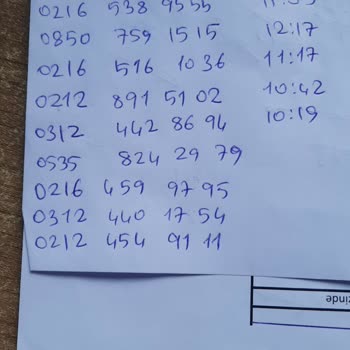 0216 538 9555
0850 759 1515 12:17
0216 516 1036 11:17
0212 891 51 02 10:42
0312 442 86 94 10:19
0535 824 29 79
0216 459 97 95
0312 440 17 54
0212 454 91 11
zinde